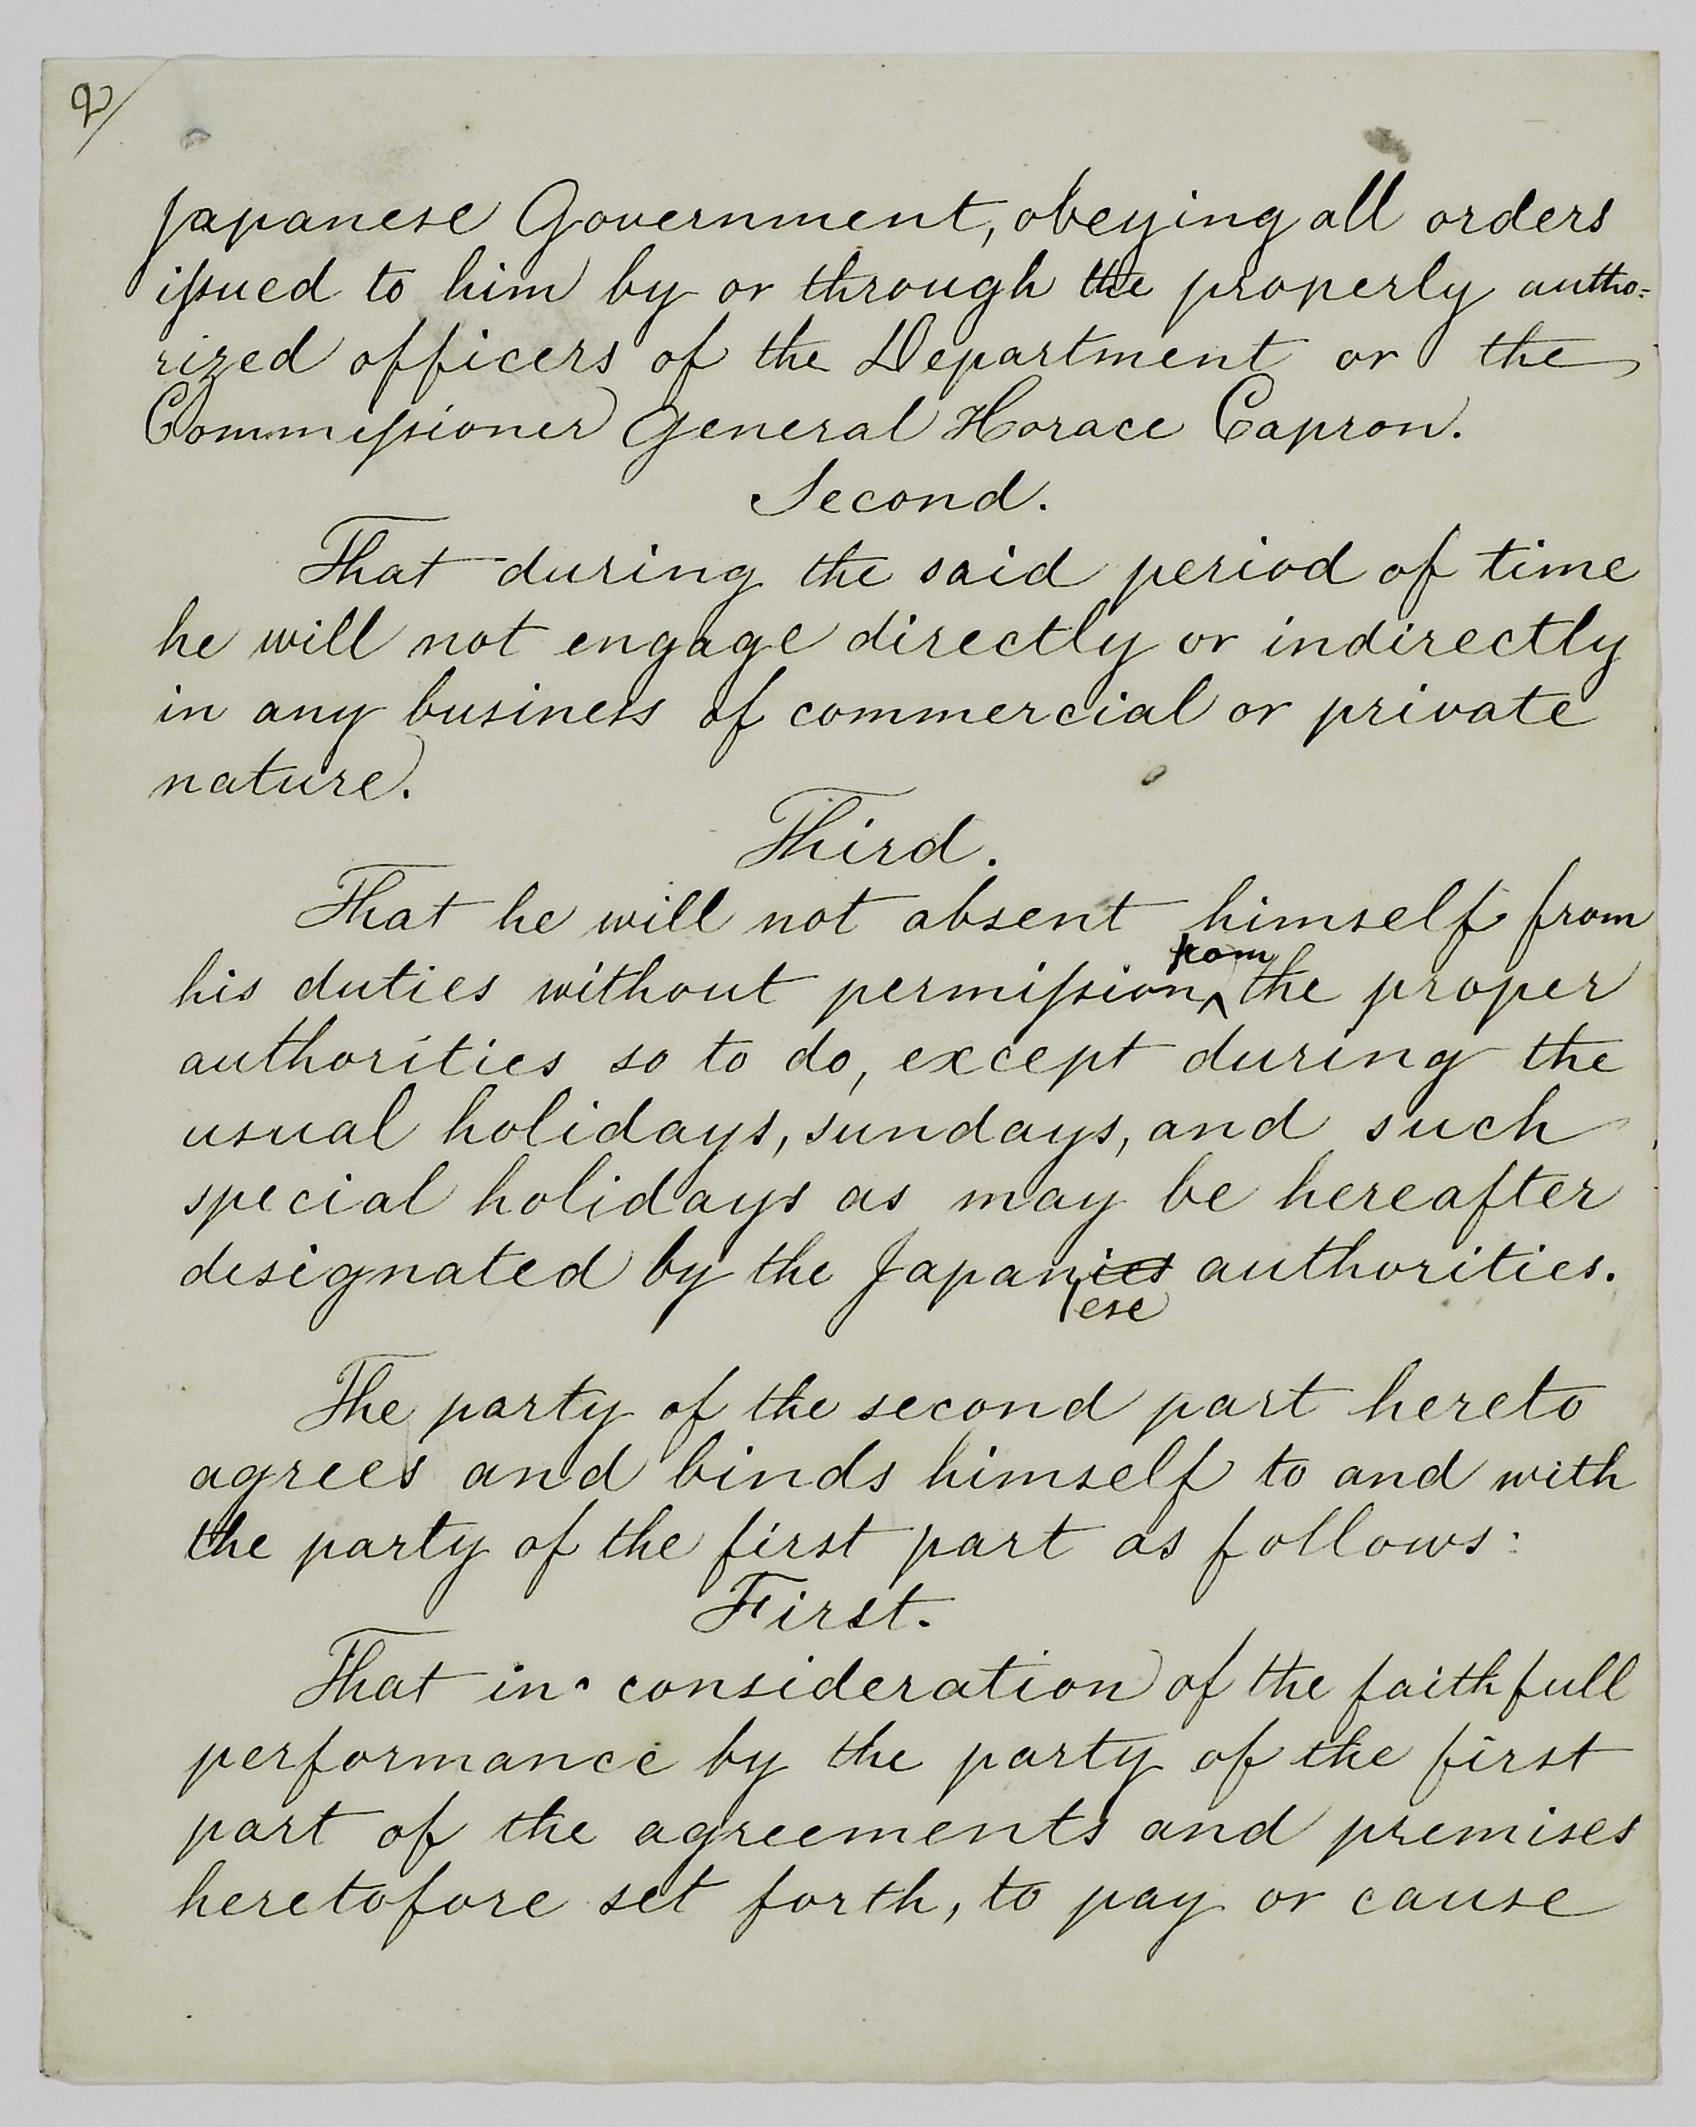 2/
Japanese Government, obeying all orders
issued to him by or through the properly autho=
rized officers of the Department or the
Commissioner General Horace Capron.
Second.
That during the said period of time
he will not engage directly or indirectly
in any business of commercial or private
nature.
Third.
That he will not absent himself from
from
his duties without permission ^ the proper
authorities so to do, except during the
usual holidays, sundays, and such
special holidays as may be hereafter
designated by the Japanies authorities.
ese
The party of the second part hereto
agrees and binds himself to and with
the party of the first part as follows:
First.
That in consideration of the faithfull
performance by the party of the first
part of the agreements and premises
heretofore set forth, to pay or cause